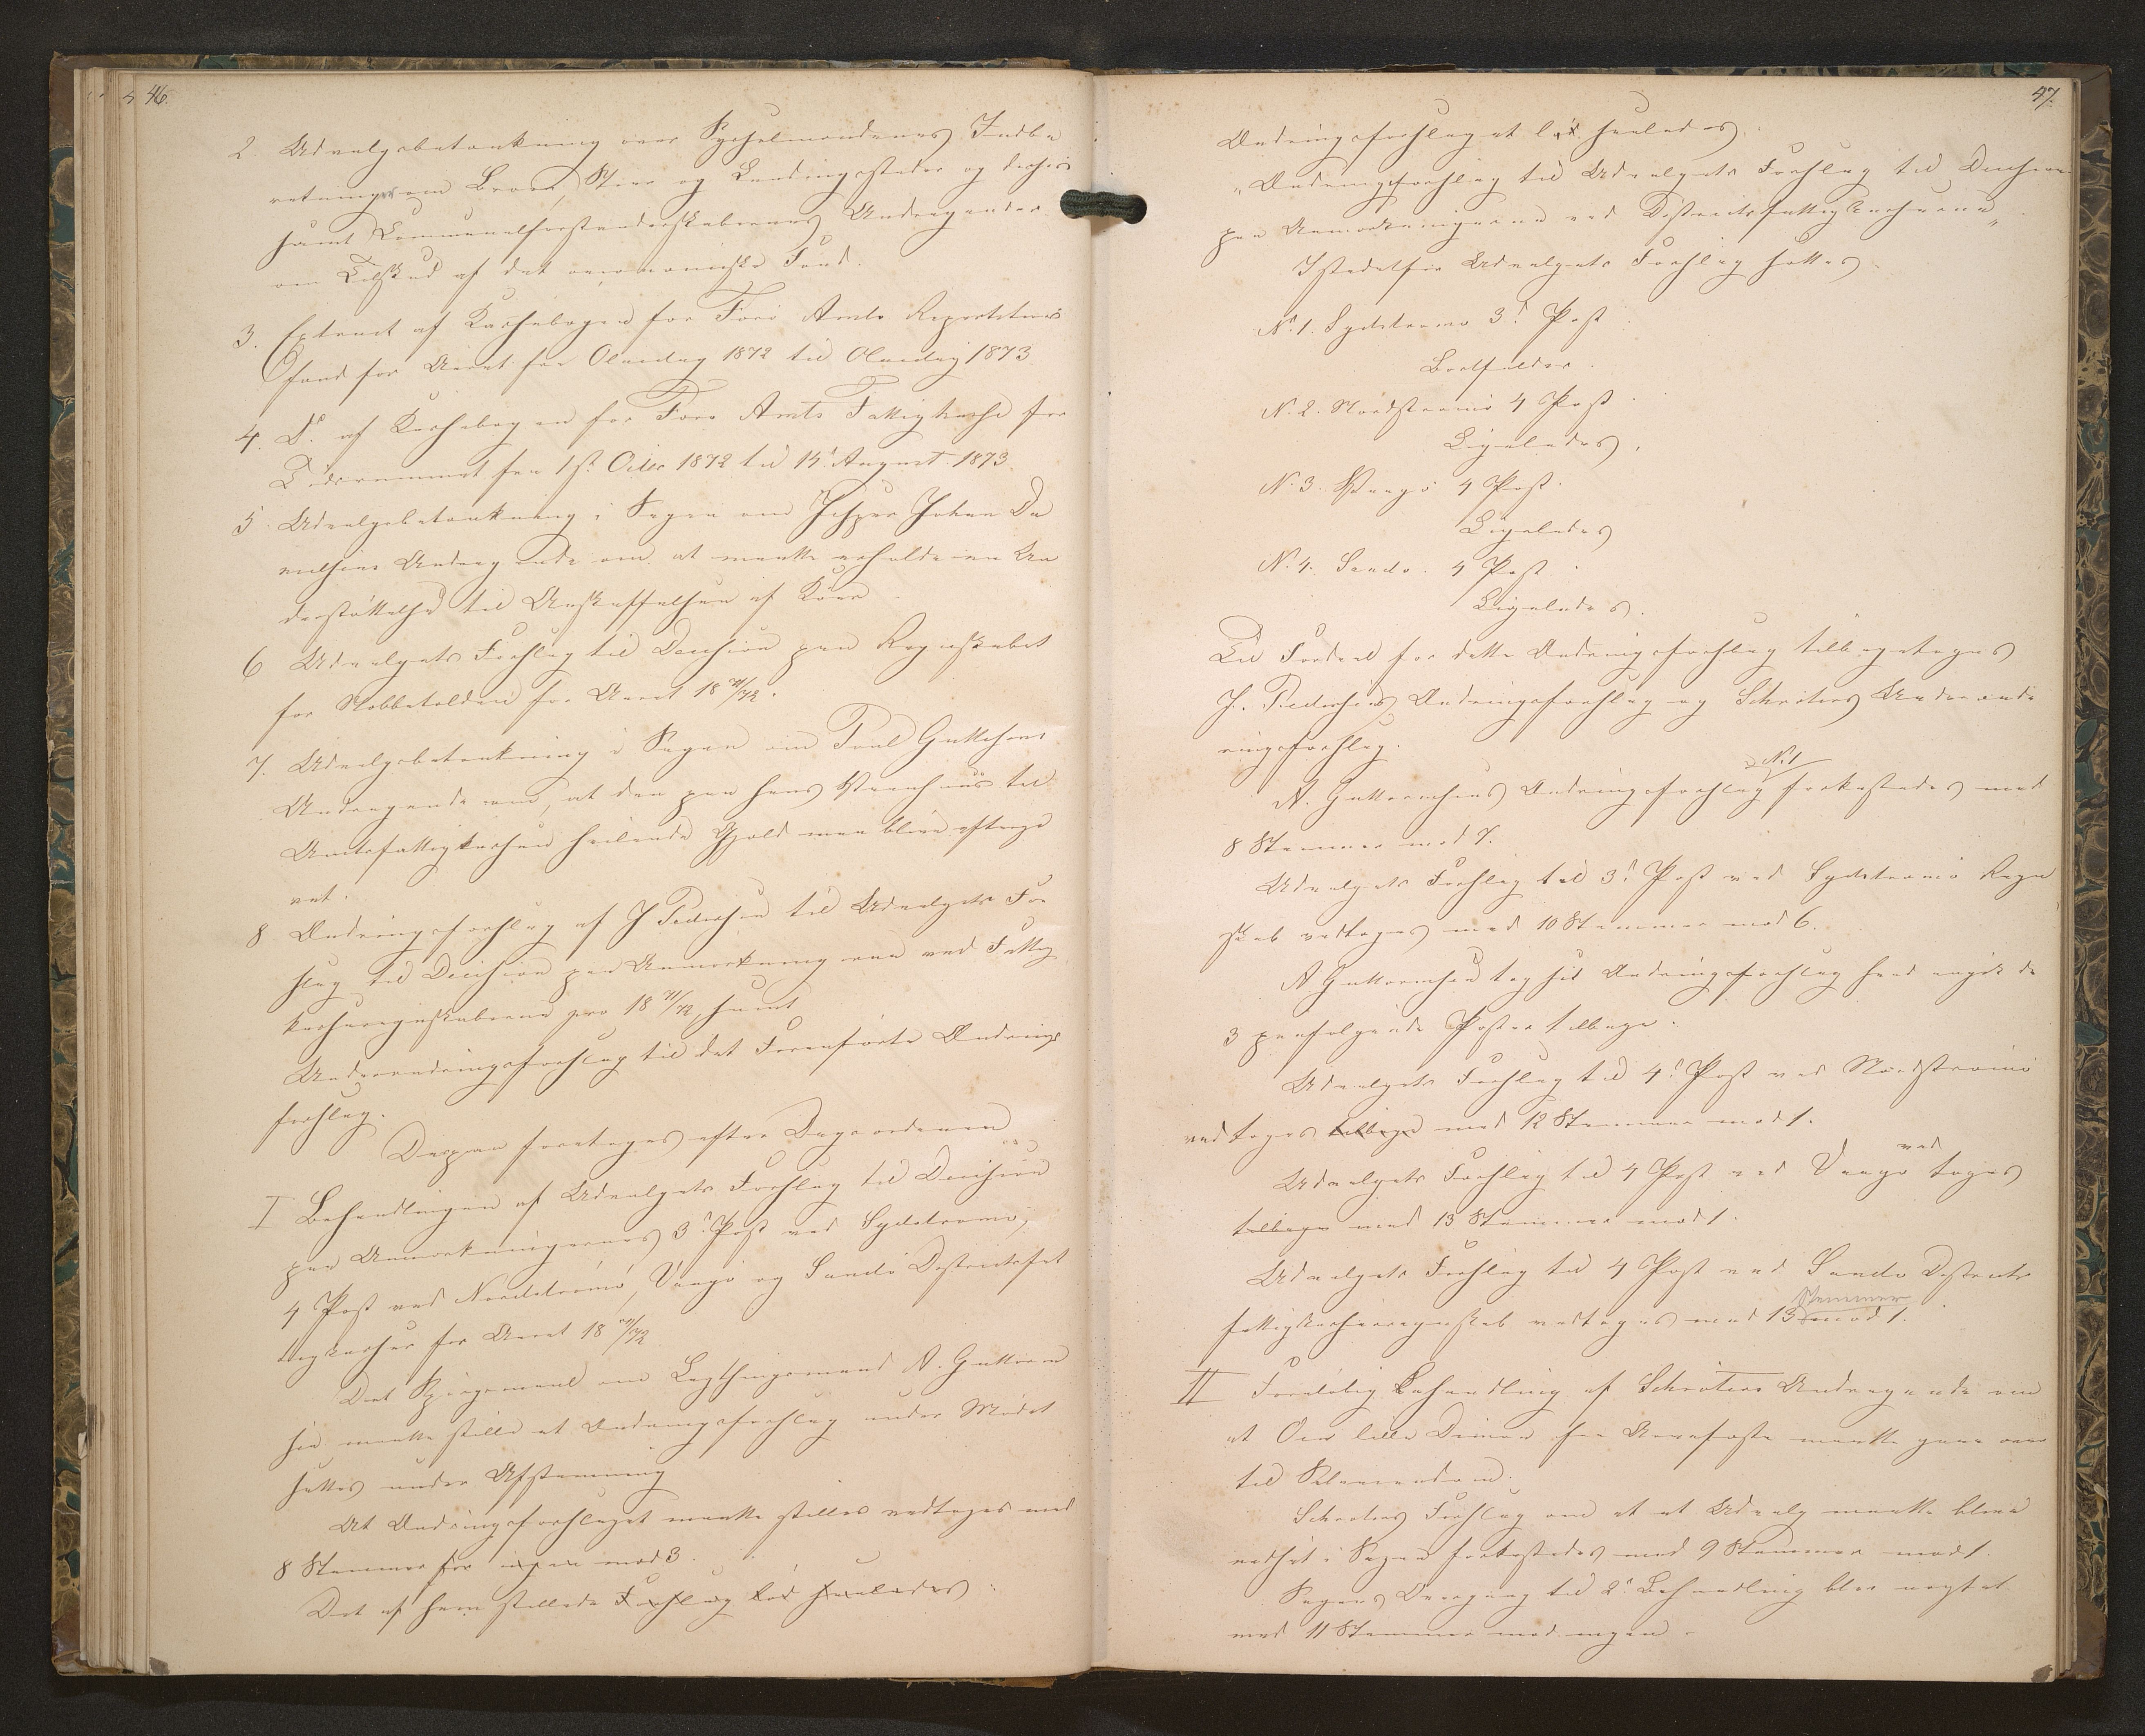 46.
2. Udvalgsbetænkning over Sysselmændenes Indbe
retninger om Broer, Støer og Landingssteder og disses
samt Communalforstanderskabernes Andragender
om Tilskud af det oeconomiske Fond.
3. Extract af Kassebogen for Færø Amts Repartitions
fond for Aaret fra Olaidag 1872 til Olaidag 1873
4. Do. af Kassebogen for Færø Amts Fattigkasse for
Tidsrummet fra 1ste Octbr 1872 til 15d August 1873.
5. Udvalgsbetænkning i Sagen om Jesper Johan Da
nielsens Andragende om at maatte erholde en Un
derstøttelse til Anskaffelsen af Køer
6 Udvalgets Forslag til Decision paa Regnskabet
for Nebbetolden for Aaret 18 71/72.
7. Udvalgsbetænkning i Sagen om Poul Guttesens
Andragende om, at den paa hans Vaanhuus til
Amtsfattigkassen heilende Gjæld maa blive eftergi
vet.
8 Ændringsforslag af J Pedersen til Udvalgets For
slag til Decision paa Anmærkningerne ved Fattig
kasseregnskaberne pro 18 71/72, samt
Underændringsforslag til det Førenførte Ændrings
forslag.
Derpaa foretoges efter Dagsordenen
I Behandlingen af Udvalgets Forslag til Decision
paa Anmærkningernes 3d Post ved Sydstrømø,
4 Post ved Nordstrømø, Vaagø og Sandø Distriktsfat
tigkasser for Aaret 18 71/72
Det Spørgsmaal om Lagthingsmand A. Guttorm
sen maatte stille et Ændringsforslag under Mødet
sattes under Afstemning
At Ændringsforslaget maatte stilles vedtoges med
8 Stemmer for ingen mod 3.
Det af ham stillede Forslag lød saaledes:
47.
Ændringsforslaget lød saaledes:
"Ændringsforslag til Udvalgets Forslag til Decision
paa Anmærkningerne ved Distriktsfattigkasserne"
Istedetfor Udvalgets Forslag sættes
No 1. Sydstrømø 3d Post.
Bortfalder.
No. 2. Nordstrømø 4 Post.
Ligeledes.
No. 3. Vaagø 4 Post.
Ligeledes
No. 4. Sandø. 4 Post.
Ligeledes.
Til Fordeel for dette Ændringsforslag tilbagetoges
J. Pedersens Ændringsforslag og Schrøters Underænd
ringsforslag.
A. Guttormsens Ændringsforslag No. 1 forkastedes med
8 Stemmer mod 7.
Udvalgets Forslag til 3d Post ved Sydstrømø Regn
skab vedtoges med 10 Stemmer mod 6.
A Guttormsen tog sit Ændringsforslag hvad angik de
3 paafølgende Poster tilbage.
Udvalgets Forslag til 4d Post ved Nordstrømø
vedtoges tilbage med 12 Stemmer mod 1.
Udvalgets Forslag til 4 Post ved Vaagø vedtoges
tilbage med 13 Stemmer mod 1.
Udvalgets Forslag til 4 Post ved Sandø Distrikts
fattigkasseregnskab vedtoges med 13 Stemmer mod 1.
II Foreløbig Behandling af Schrøters Andragende om
at Øen lille Dimon fra Arvefæste maatte gaae over
til Selveiendom.
Schrøters Forslag om at et Udvalg maatte blive
nedsat i Sagen forkastedes med 9 Stemmer mod 1.
Sagens Overgang til 2d Behandling blev nægtet
med 11 Stemmer mod ingen.